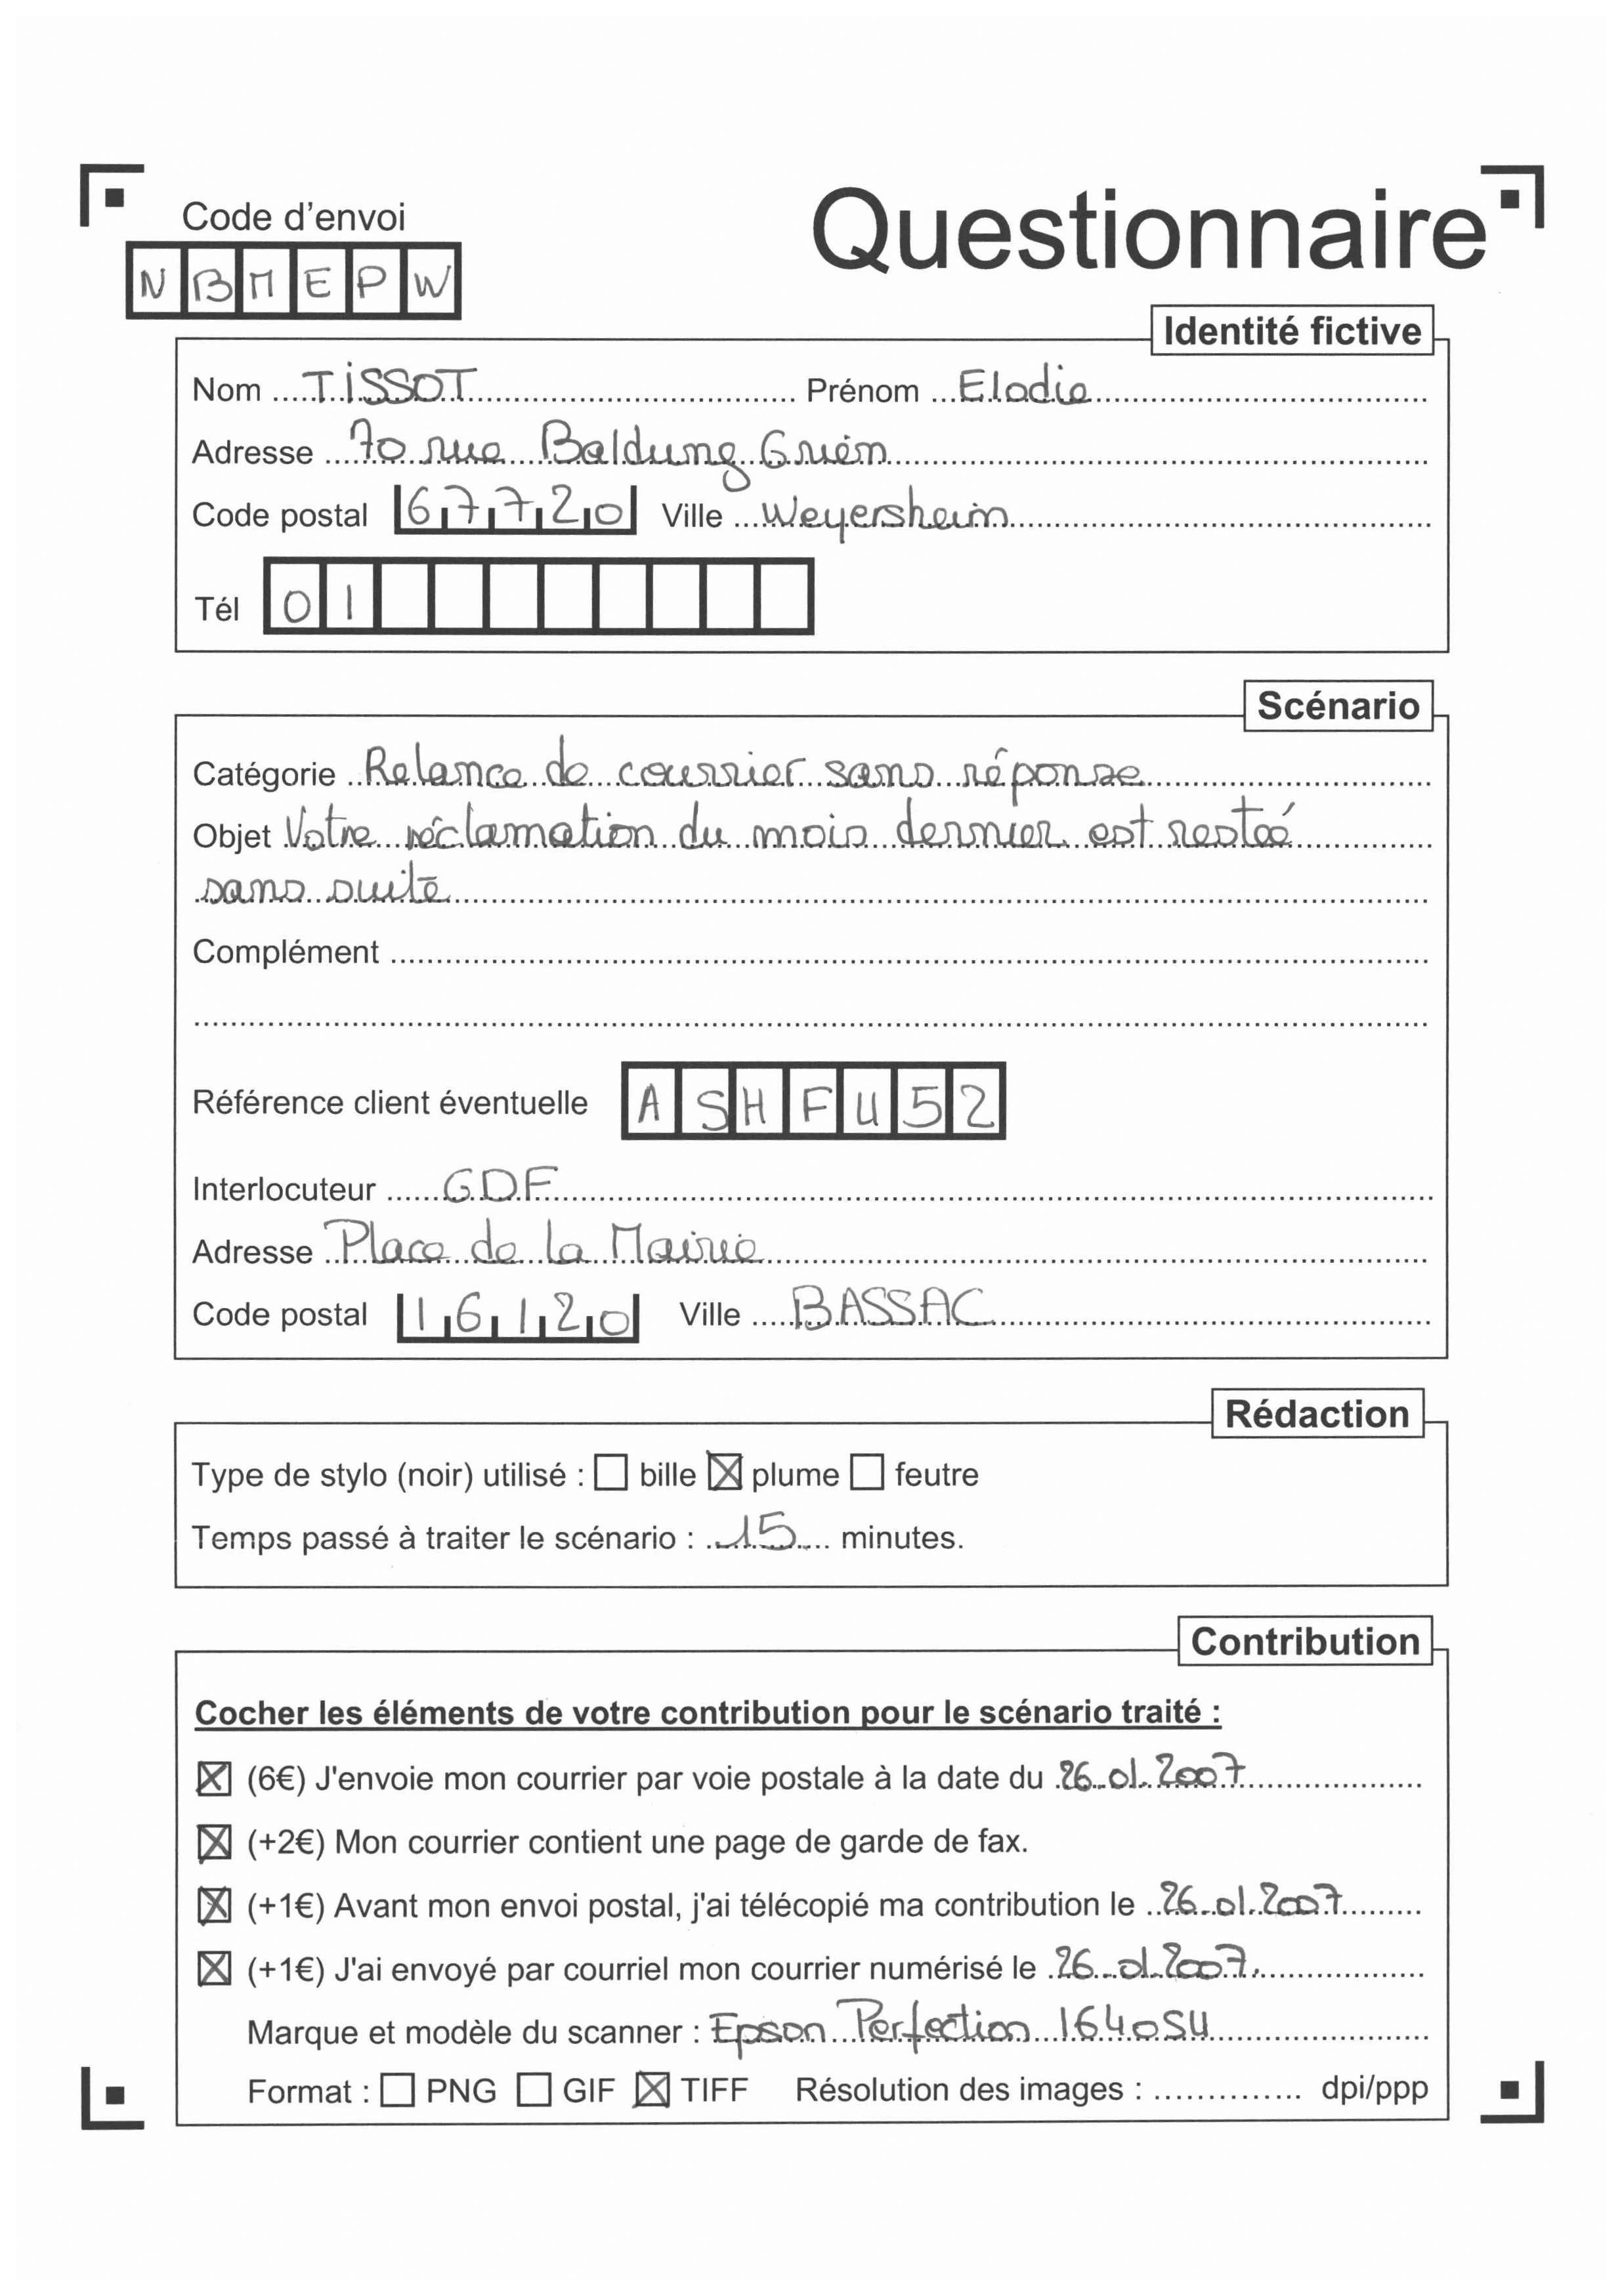 Code d'envoi
Questionnaire
NBMEPW
Identité fictive
Nom TISSOT Prénom Elodie
Adresse 70 rue Baldung Grien
Code postal 67720 Ville Weyersheim
Tél 01
Scénario
Catégorie Relance de courrier sans réponse
Objet Votre réclamation du mois dernier est restée
sans suite
Complément
Référence client éventuelle ASHFU52
Interlocuteur GDF
Adresse Place de la Mairie
Code postal 16120 Ville BASSAC
Rédaction
Type de stylo (noir) utilisé : ☐ bille ☒ plume ☐ feutre
Temps passé à traiter le scénario : 15 minutes.
Contribution
Cocher les éléments de votre contribution pour le scénario traité :
☒ (6€) J'envoie mon courrier par voie postale à la date du 26.01.2007
☒ (+2€) Mon courrier contient une page de garde de fax.
☒ (+1€) Avant mon envoi postal, j'ai télécopié ma contribution le 26.01.2007
☒ (+1€) J'ai envoyé par courriel mon courrier numérisé le 26.01.2007.
Marque et modèle du scanner : Epson Perfection 1640SU
Format : ☐ PNG ☐ GIF ☒ TIFF Résolution des images : .............. dpi/ppp